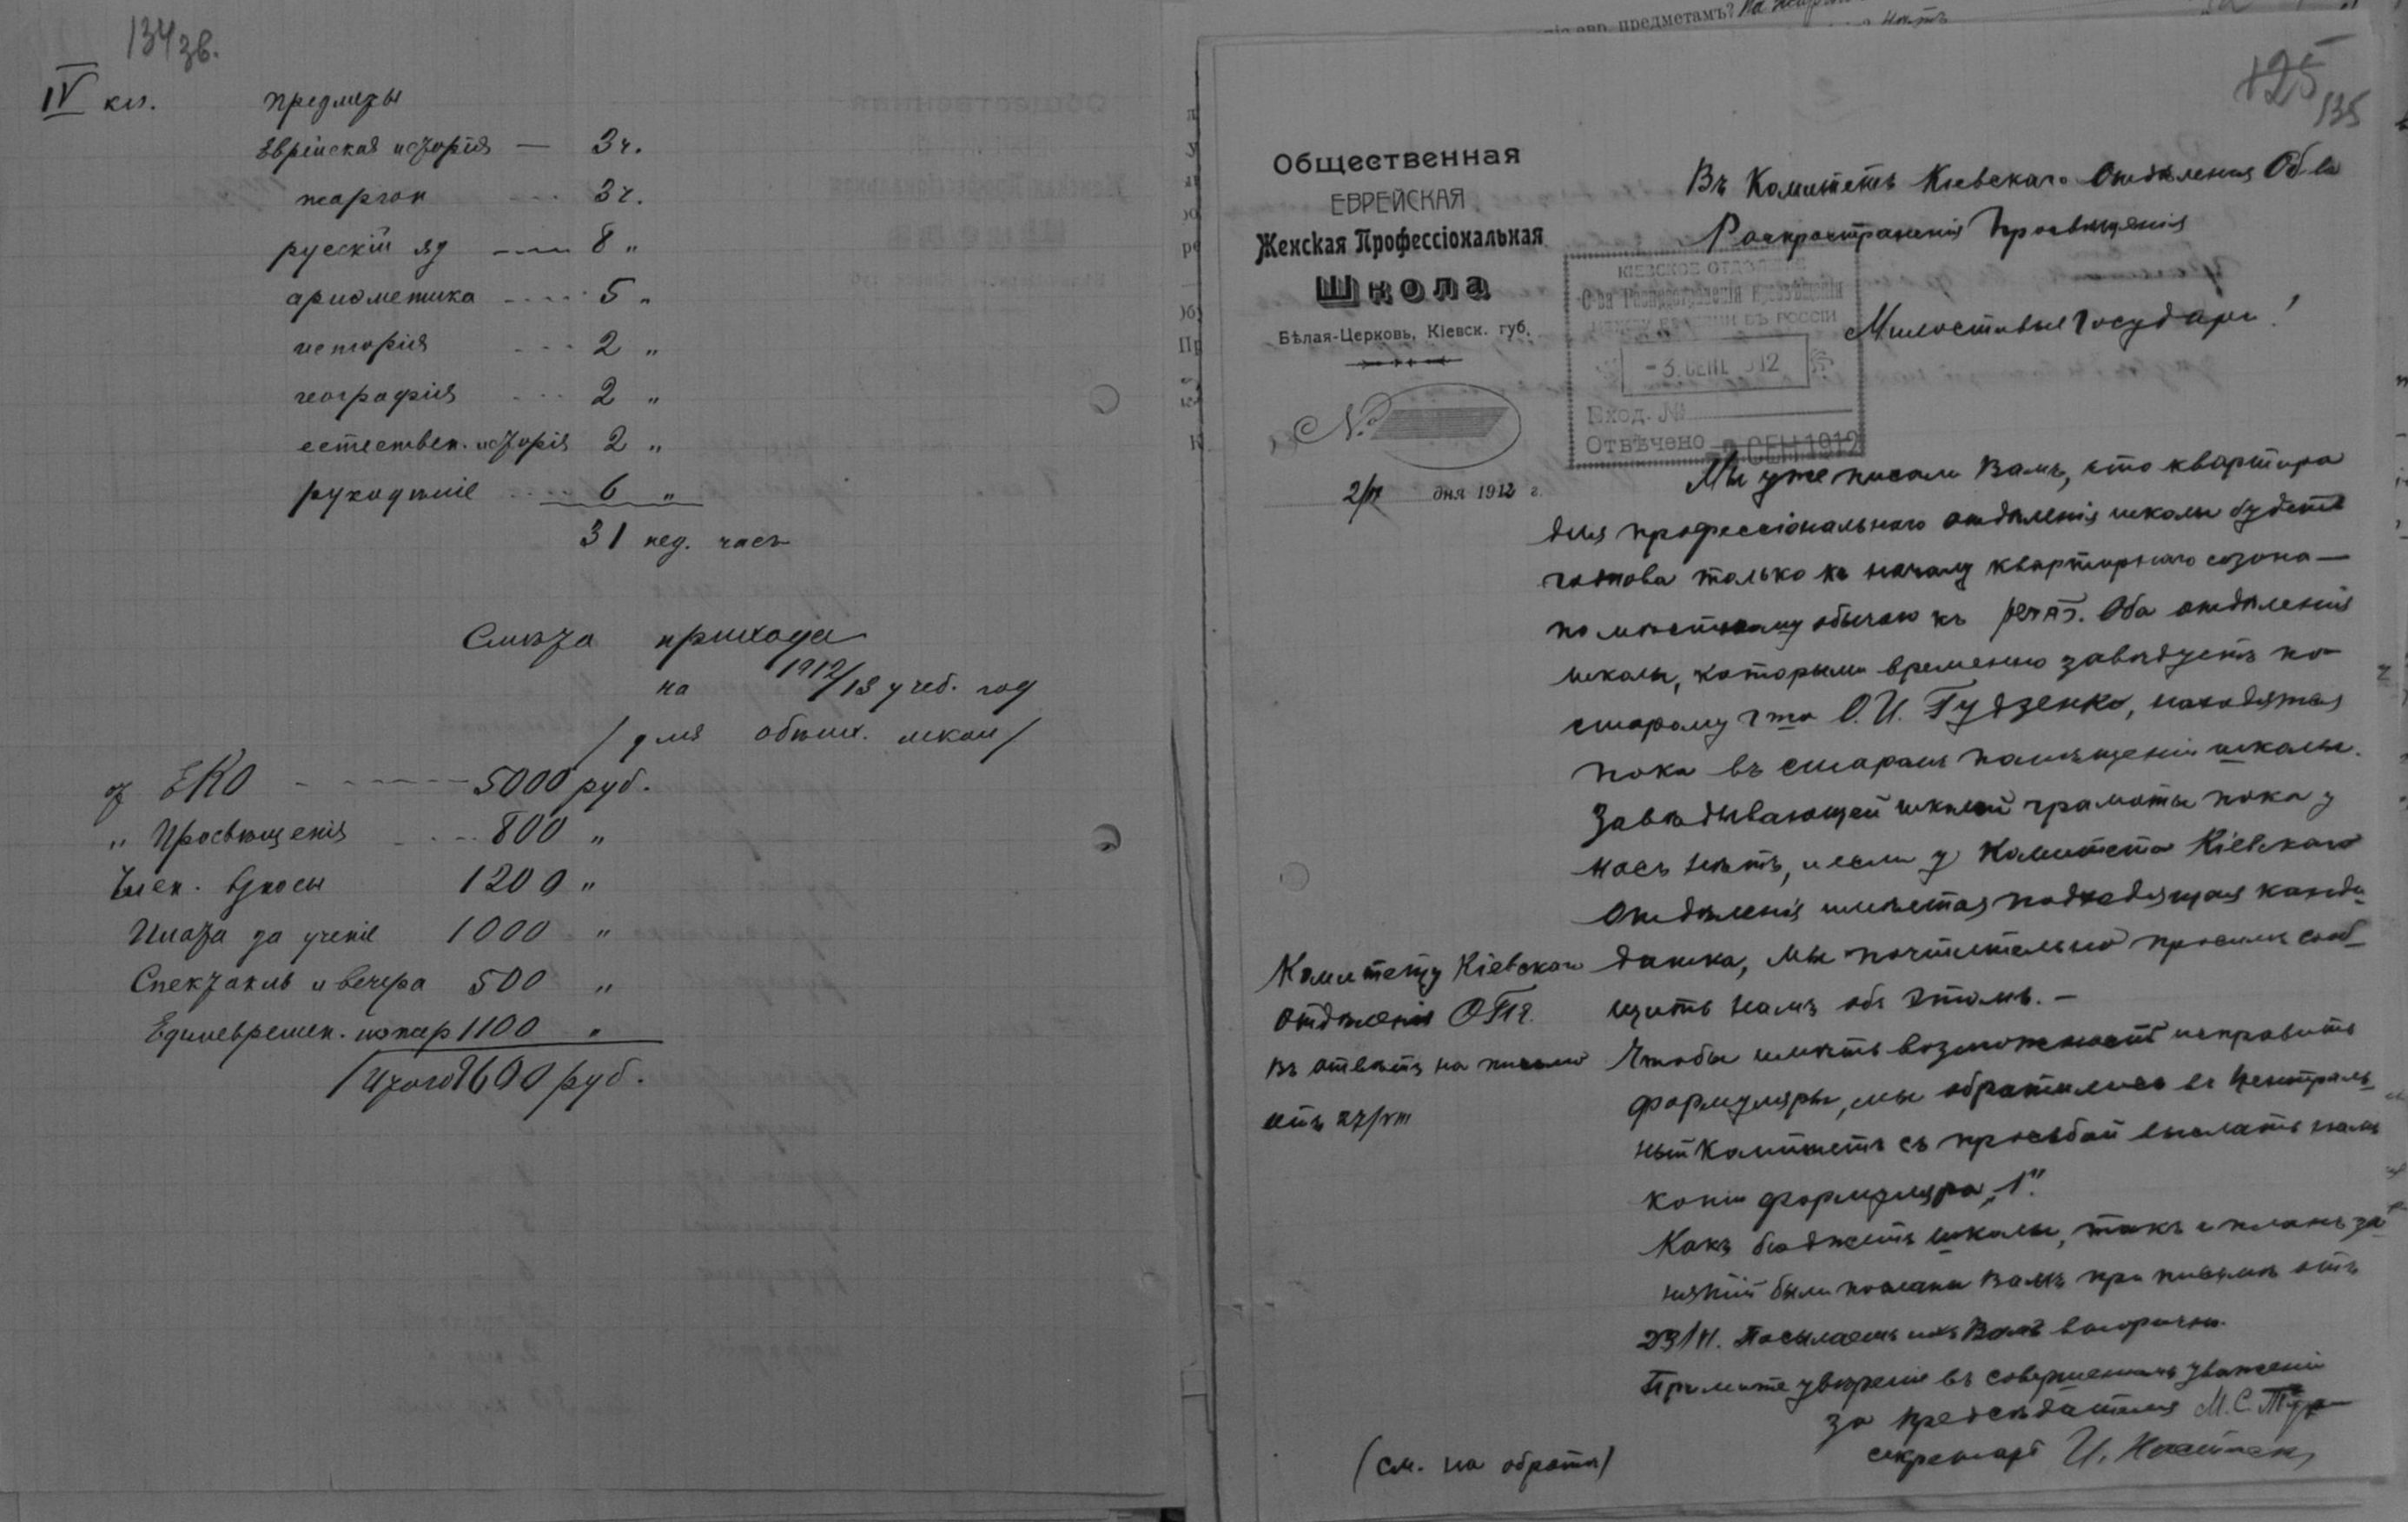 134 зв.
IV кл.
Предметы
Еврейская исторія — 3 ч.
жаргон 3 ч.
русскій яз 8 "
ариѳметика 5 "
исторія 2 "
географія 2 "
естествен. исторія 2 "
рукодѣліе 6 "
31 нед. часъ
Смѣта прихода
на 1912/13 учеб. год
/для обѣих. школ/
от ЕКО 5000 руб.
" Просвѣщенія 800 "
Член. взносы 1200 "
Плата за ученіе 1000 "
Спектакль и вечера 500 "
Единоврешен. 1100 "
Итого 9600 руб.
125
135
Общественная
ЕВРЕЙСКАЯ
Женская Профессіональная
Школа
Бѣлая-Церковь, Кіевск. губ.
№
дня 1912 г.
КІЕВСКОЕ ОТДѢЛЕНІЕ
О-ва Распространенія просвѣщенія
МЕЖДУ ЕВРЕЯМИ ВЪ РОССІИ
- 3. СЕНТ 1912
Вход. №
Отвѣчено - 3 СЕН 1912
Въ Комитетъ Кіевскаго Отдѣленія Об-ва
Распространенія Просвѣщенія
Милостивые Государи!
Мы уже писали Вамъ, что квартира
для профессіональнаго отдѣленія школы будетъ
готова только къ началу квартирнаго сезона —
по мѣстному обычаю къ . Оба отдѣленія
школы, которыми временно завѣдуетъ по
старому г-жа О. И. Гудзенко, находятся
пока въ старомъ помѣщеніи школы.
Завѣдывающей школой грамоты пока у
насъ нѣтъ, и если у Комитета Кіевскаго
Отдѣленія имѣется подходящая канди-
датка, мы почтительно просимъ сооб-
щить намъ объ этомъ. —
Чтобы имѣть возможность исправить
формуляры, мы обратились въ Централь-
ный Комитетъ съ просьбой выслать намъ
копіи формуляра „1".
Какъ бюджетъ школы, такъ и планъ за-
нятій были посланы Вамъ при письмѣ отъ
Посылаемъ ихъ Вамъ вторично.
Примите увѣреніе въ совершенномъ уваженіи
за предсѣдателя М. С.
секретарь И.
Комитету Кіевскаго
Отдѣленія ОПЕ.
Въ отвѣтъ на письмо
отъ 27/VIII
(см. на оборотѣ)